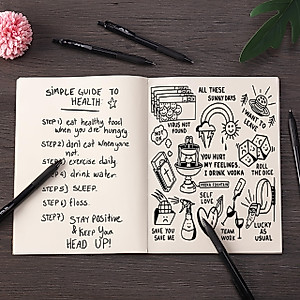 SIMPLE GUIDE TO
HEALTH:
STEP 1) eat healthy food
when you are hungry
STEP 2) don't eat when you're
not.
STEP 3) exercise daily
STEP 4) drink water.
STEP 5) SLEEP.
STEP 6) floss.
STEP 7) STAY POSITIVE
& KEEP YOUR
HEAD UP!
ALL THESE
SUNNY DAYS
VIRUS NOT
FOUND
I WANT TO
LEAVE
YOU HURT
MY FEELINGS.
I DRINK VODKA
ROLL
THE DICE
VODKA FOUNTAIN
SELF
LOVE
SAVE YOU
SAVE ME
TEAM
WORK
LUCKY
AS
USUAL